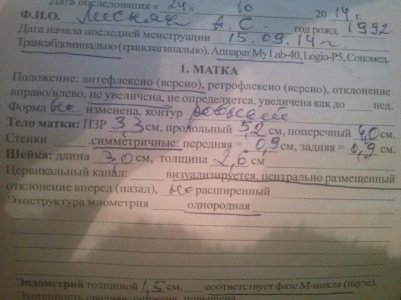 Дата обследования « 24 » 10 2014 г.
Ф.И.О. А.С. год рожд. 1992
Дата начала последней менструации 15.09.14 г
Трансабдоминально (трансвагинально). Аппарат My Lab-40, Logio-P5, Сономед.
1. МАТКА
Положение: антефлексио (версио), ретрофлексио (версио), отклонение
вправо/влево, не увеличена, не определяется, увеличена как до нед.
Форма не изменена, контур ровный
Тело матки: ПЗР 3,3 см, продольный 5,2 см, поперечный 4,0 см.
Стенки симметричные: передняя = 0,9 см, задняя = 0,9 см.
Шейка: длина 3,0 см, толщина 2,6 см
Цервикальный канал: визуализируется, центрально размещенный
отклонение вперед (назад), не расширенный
Экоструктура миометрия однородная
Эндометрий толщиной 1,5 см, соответствует фазе М-цикла (паузе).
Эхогенность средняя, снижена, повышена